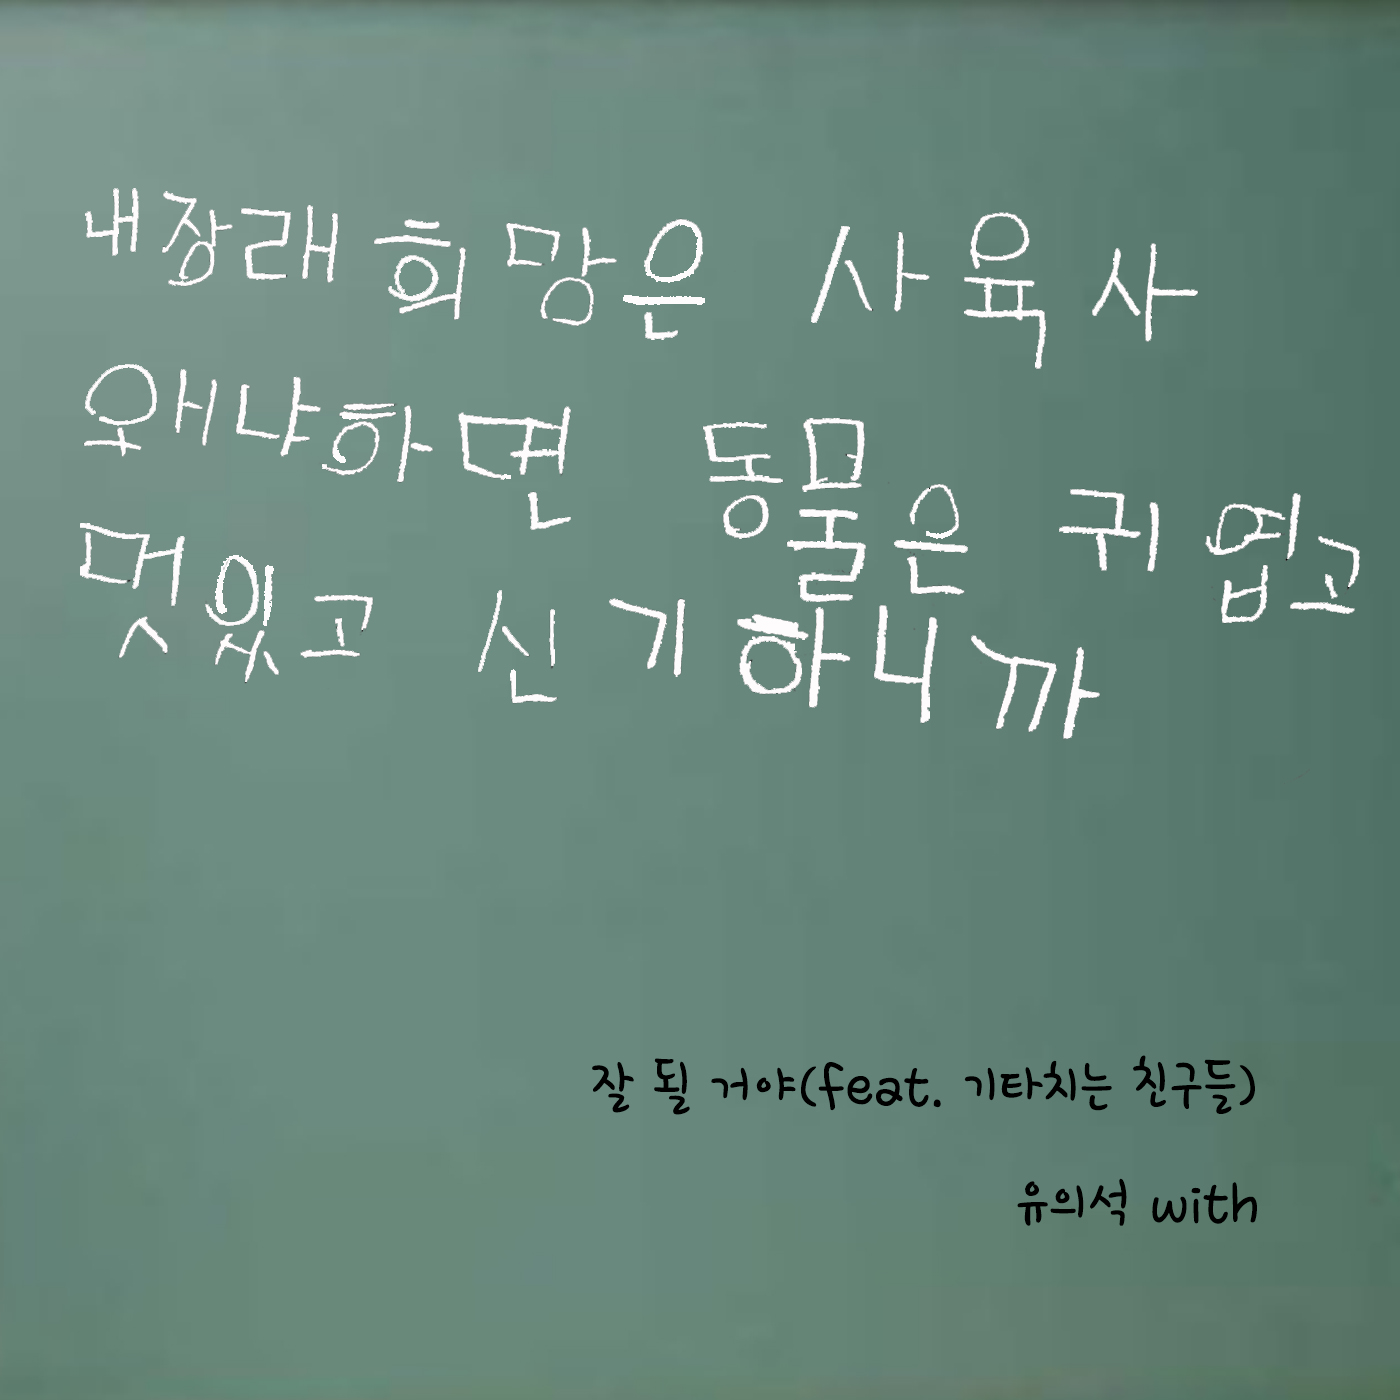 내장래희망은 사육사
왜냐하면 동물은 귀엽고
멋있고 신기하니까
잘 될 거야(feat. 기타치는 친구들)
유의석 with